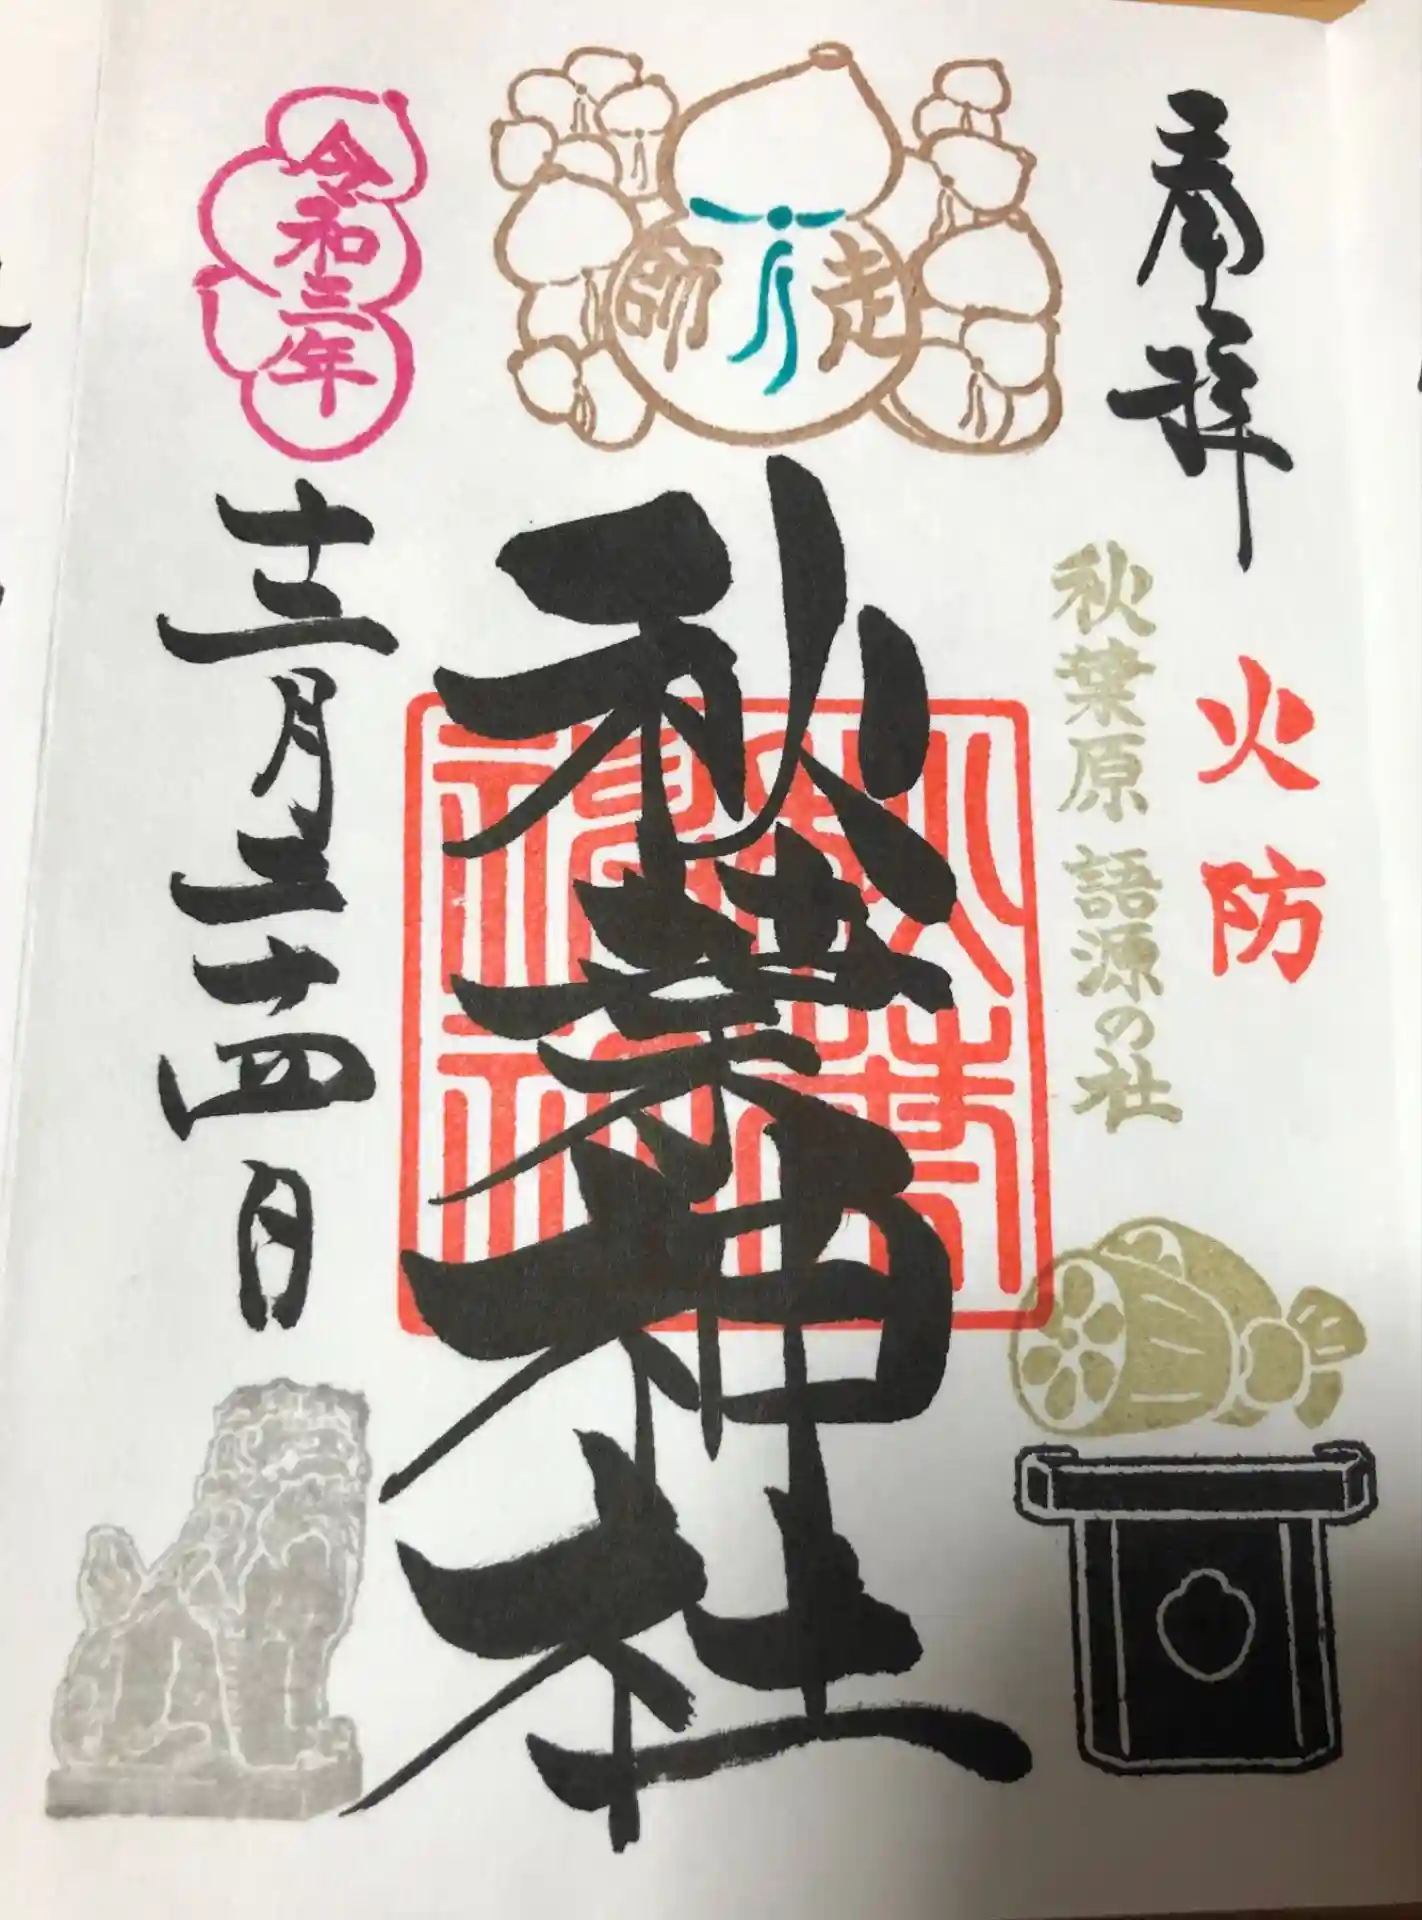 奉拝
火防
秋葉原 語源の社
師走
秋葉神社
令和三年
十二月二十四日